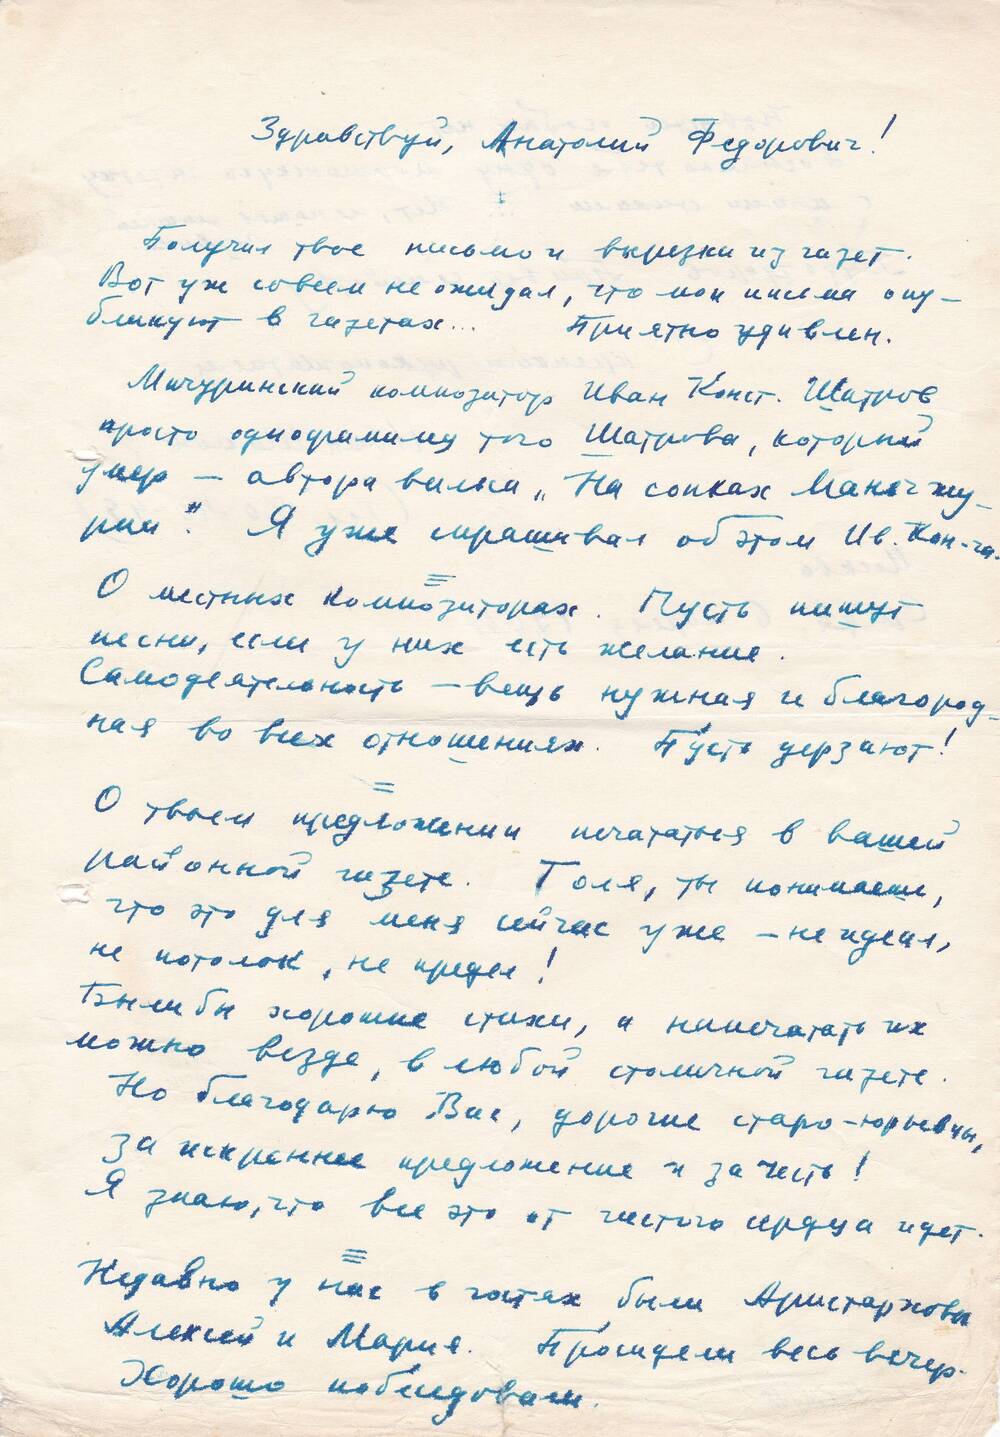 Здравствуй, Анатолий Федорович!
Получил твое письмо и вырезки из газет.
Вот уж совсем не ожидал, что мои письма опу-
бликуют в газетах... Приятно удивлен.
Мичуринский композитор Иван Конст. Шатров
просто однофамилец того Шатрова, который
умер — автора вальса „На сопках Маньчжу-
рии". Я уже спрашивал об этом Ив. Кон-ча.
О местных композиторах. Пусть пишут
песни, если у них есть желание.
Самодеятельность — вещь нужная и благород-
ная во всех отношениях. Пусть дерзают!
О твоем предложении печататься в вашей
районной газете. Толя, ты понимаешь,
что это для меня сейчас уже — не идеал,
не потолок, не предел!
Были бы хорошие стихи, а напечатать их
можно везде, в любой столичной газете.
Но благодарю Вас, дорогие старо-юрьевцы,
за искреннее предложение и за честь!
Я знаю, что все это от чистого сердца идет.
Недавно у нас в гостях были Аристарховы
Алексей и Мария. Просидели весь вечер.
Хорошо побеседовали.